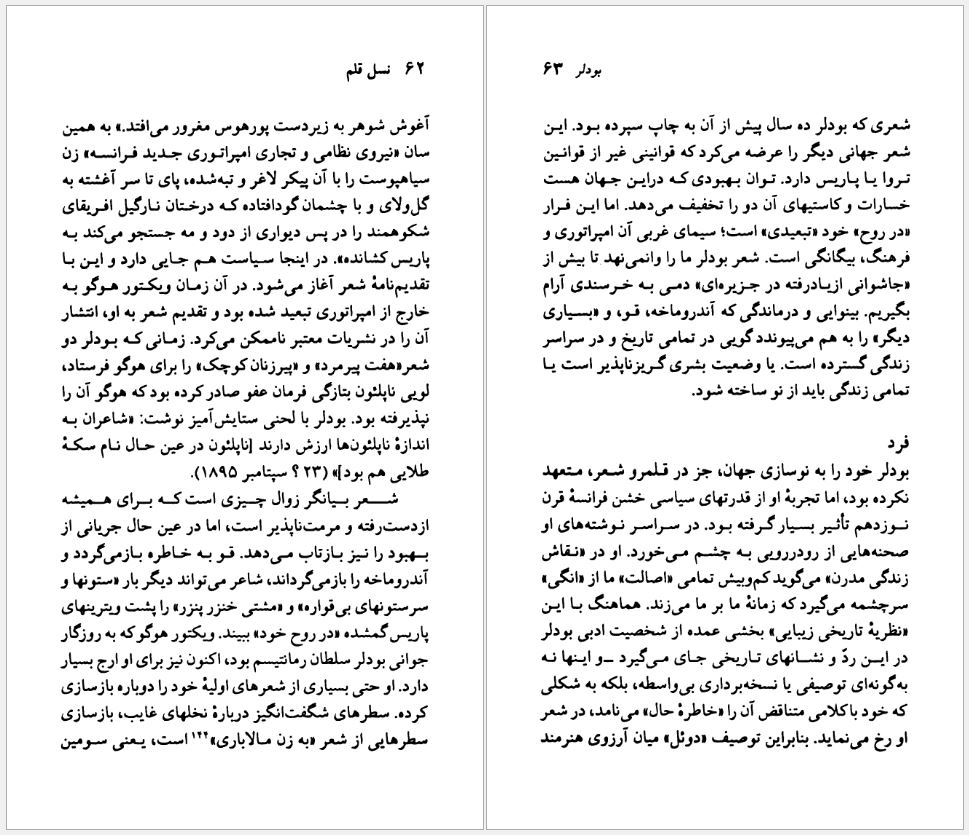 ۶۲ نسل قلم
آغوش شوهر به زیردست پورهوس مغرور می‌افتد.» به همین
سان «نیروی نظامی و تجاری امپراتوری جدید فرانسه» زن
سیاهپوست را با آن پیکر لاغر و تبه‌شده، پای تا سر آغشته به
گل‌ولای و با چشمان گودافتاده که درختان نارگیل افریقای
شکوهمند را در پس دیواری از دود و مه جستجو می‌کند به
پاریس کشانده». در اینجا سیاست هم جایی دارد و این با
تقدیم‌نامهٔ شعر آغاز می‌شود. در آن زمان ویکتور هوگو به
خارج از امپراتوری تبعید شده بود و تقدیم شعر به او، انتشار
آن را در نشریات معتبر ناممکن می‌کرد. زمانی که بودلر دو
شعر «هفت پیرمرد» و «پیرزنان کوچک» را برای هوگو فرستاد،
لویی ناپلئون بتازگی فرمان عفو صادر کرده بود که هوگو آن را
نپذیرفته بود. بودلر با لحنی ستایش‌آمیز نوشت: «شاعران به
اندازهٔ ناپلئون‌ها ارزش دارند [ناپلئون در عین حال نام سکهٔ
طلایی هم بود]» (۲۳ ؟ سپتامبر ۱۸۹۵).
شعر بیانگر زوال چیزی است که برای همیشه
ازدست‌رفته و مرمت‌ناپذیر است، اما در عین حال جریانی از
بهبود را نیز بازتاب می‌دهد. قو به خاطره بازمی‌گردد و
آندروماخه را بازمی‌گرداند، شاعر می‌تواند دیگر بار «ستونها و
سرستونهای بی‌قواره» و «مشتی خنزر پنزر» را پشت ویترینهای
پاریس گمشده «در روح خود» ببیند. ویکتور هوگو که به روزگار
جوانی بودلر سلطان رمانتیسم بود، اکنون نیز برای او ارج بسیار
دارد. او حتی بسیاری از شعرهای اولیهٔ خود را دوباره بازسازی
کرده. سطرهای شگفت‌انگیز دربارهٔ نخلهای غایب، بازسازی
سطرهایی از شعر «به زن مالاباری»۱۴۴ است، یعنی سومین
بودلر ۶۳
شعری که بودلر ده سال پیش از آن به چاپ سپرده بود. این
شعر جهانی دیگر را عرضه می‌کرد که قوانینی غیر از قوانین
تروا یا پاریس دارد. توان بهبودی که دراین جهان هست
خسارات و کاستیهای آن دو را تخفیف می‌دهد. اما این فرار
«در روح» خود «تبعیدی» است؛ سیمای غربی آن امپراتوری و
فرهنگ، بیگانگی است. شعر بودلر ما را وانمی‌نهد تا بیش از
«جاشوانی ازیادرفته در جزیره‌ای» دمی به خرسندی آرام
بگیریم. بینوایی و درماندگی که آندروماخه، قو، و «بسیاری
دیگر» را به هم می‌پیوندد گویی در تمامی تاریخ و در سراسر
زندگی گسترده است. یا وضعیت بشری گریزناپذیر است یا
تمامی زندگی باید از نو ساخته شود.
فرد
بودلر خود را به نوسازی جهان، جز در قلمرو شعر، متعهد
نکرده بود، اما تجربهٔ او از قدرتهای سیاسی خشن فرانسهٔ قرن
نوزدهم تأثیر بسیار گرفته بود. در سراسر نوشته‌های او
صحنه‌هایی از رودررویی به چشم می‌خورد. او در «نقاش
زندگی مدرن» می‌گوید کم‌وبیش تمامی «اصالت» ما از «انگی»
سرچشمه می‌گیرد که زمانهٔ ما بر ما می‌زند. هماهنگ با این
«نظریهٔ تاریخی زیبایی» بخشی عمده از شخصیت ادبی بودلر
در این ردّ و نشانهای تاریخی جای می‌گیرد –و اینها نه
به‌گونه‌ای توصیفی یا نسخه‌برداری بی‌واسطه، بلکه به شکلی
که خود با کلامی متناقض آن را «خاطرهٔ حال» می‌نامد، در شعر
او رخ می‌نماید. بنابراین توصیف «دوئل» میان آرزوی هنرمند